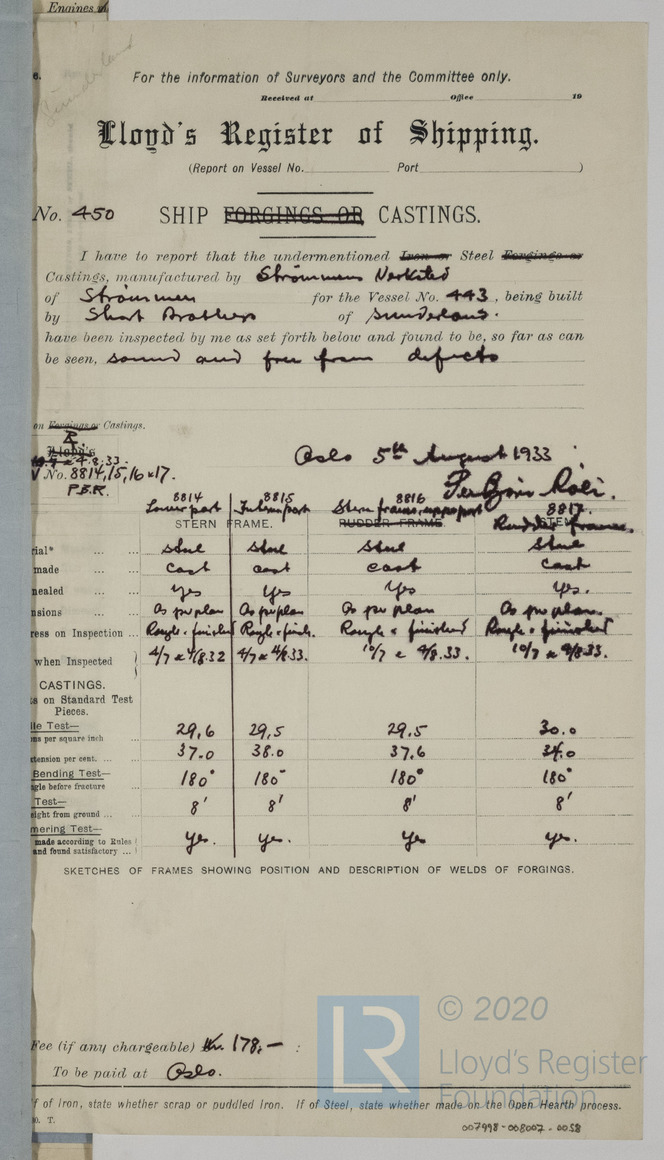 Engines
6.
Sunderland
For the information of Surveyors and the Committee only.
Received at Office 19
Lloyd's Register of Shipping.
(Report on Vessel No. Port )
No. 450 SHIP FORGINGS OR CASTINGS.
I have to report that the undermentioned Iron or Steel Forgings or
Castings, manufactured by Strömmens Verksted
of Strömmen for the Vessel No. 443, being built
by Short Brothers of Sunderland.
have been inspected by me as set forth below and found to be, so far as can
be seen, sound and free from defects
on Forgings or Castings.
Lloyd's
4.8.33.
No. 8814,15,16 & 17.
P.B.R.
Oslo 5th August 1933
8814 8815 8816 8817.
Lower part part Stern frame, upper part Rudder frame.
STERN FRAME. RUDDER FRAME. STEM
rial* ... ... steel steel steel steel
made ... ... cast cast cast cast
nealed ... ... yes yes yes yes.
nsions ... ... As per plan As per plan As per plan As per plan.
ress on Inspection ... Rough & finished Rough & finish. Rough & finished Rough & finished
when Inspected 4/7 & 4/8.32 4/7 & 4/8.33. 10/7 & 4/8.33. 10/7 & 4/8.33.
CASTINGS.
s on Standard Test
Pieces.
ile Test—
ns per square inch ... 29,6 29,5 29,5 30.0
xtension per cent. ... ... 37.0 38.0 37,6 34.0
Bending Test—
ngle before fracture ... 180° 180° 180° 180°
Test—
eight from ground ... ... 8' 8' 8' 8'
mering Test—
made according to Rules
and found satisfactory ... yes. yes. yes yes.
SKETCHES OF FRAMES SHOWING POSITION AND DESCRIPTION OF WELDS OF FORGINGS.
Fee (if any chargeable) Kr. 178,— :
To be paid at Oslo.
If of Iron, state whether scrap or puddled Iron. If of Steel, state whether made on the Open Hearth process.
O. T.
007998-008007-0058
LR
© 2020
Lloyd's Register
Foundation